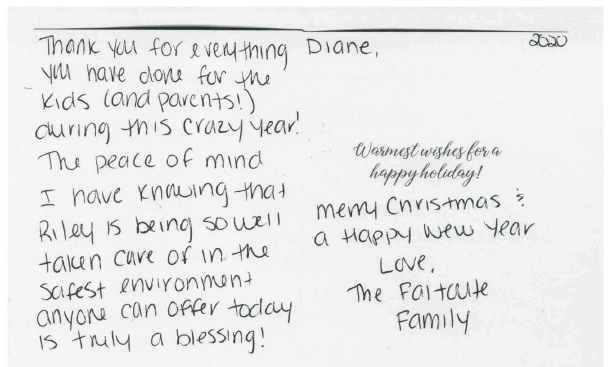 Thank you for everything
you have done for the
kids (and parents!)
during this crazy year!
The peace of mind
I have knowing that
Riley is being so well
taken care of in the
safest environment
anyone can offer today
is truly a blessing!
Diane,
2020
Warmest wishes for a
happy holiday!
merry Christmas &
a Happy New Year
Love,
The Faitoute
Family